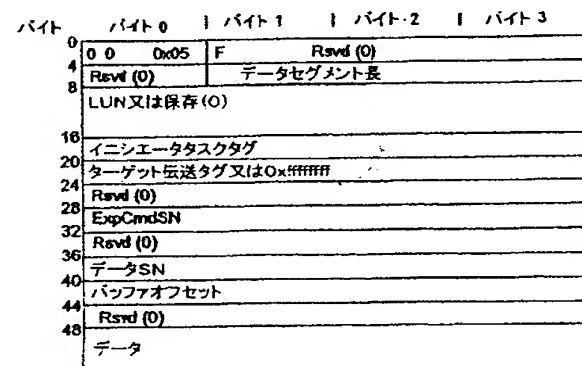 バイト バイト 0 | バイト 1 | バイト 2 | バイト 3
0
0 0 0x05 F Rsvd (0)
4
Rsvd (0) データセグメント長
8
LUN又は保存(0)
16
イニシエータタスクタグ
20
ターゲット伝送タグ又は0xffffffff
24
Rsvd (0)
28
ExpCmdSN
32
Rsvd (0)
36
データSN
40
バッファオフセット
44
Rsvd (0)
48
データ